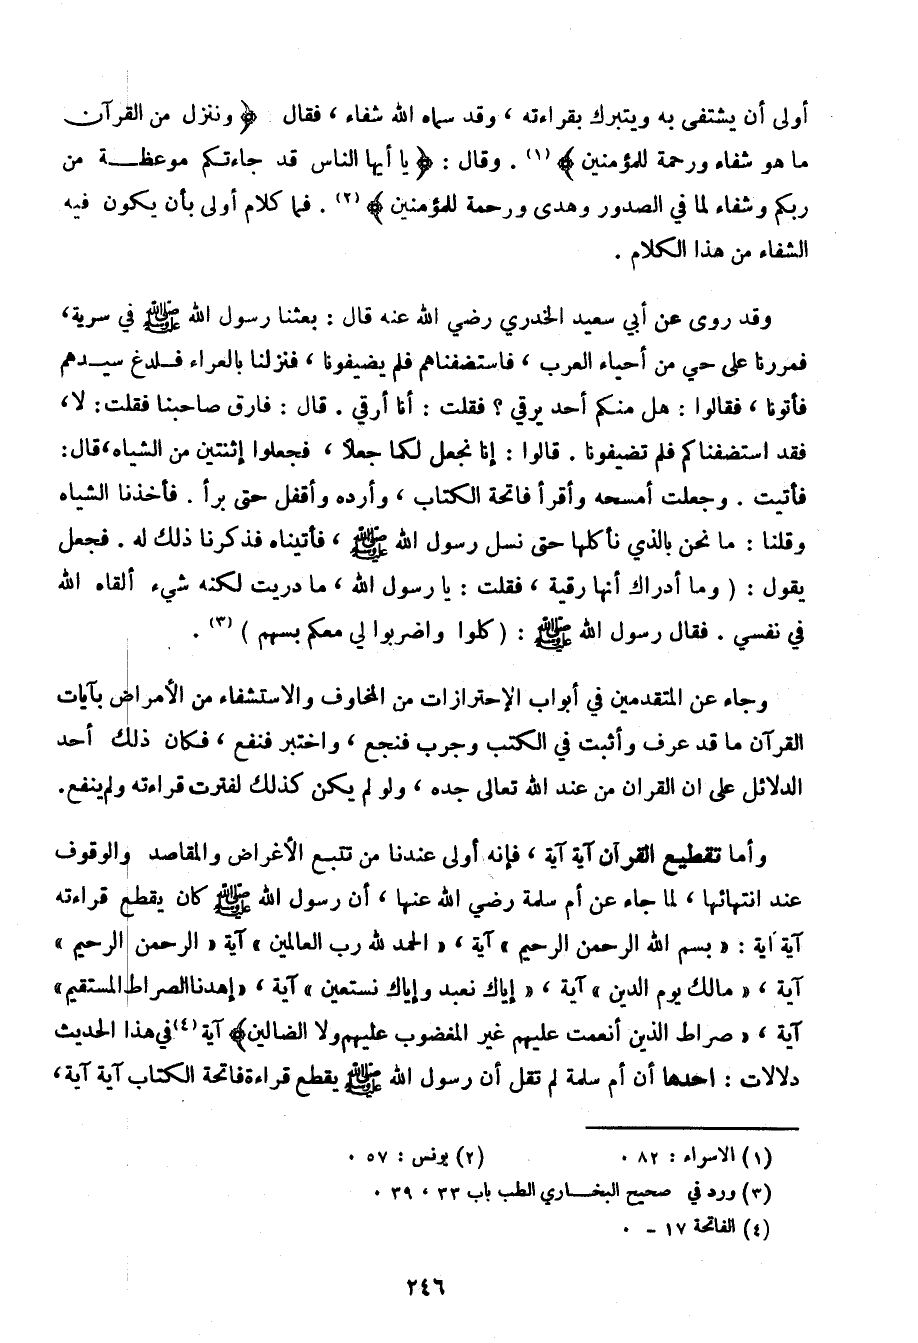 أولى أن يشتفى به ويتبرك بقراءته ، وقد سماه الله شفاء ، فقال ﴿ وننزل من القرآن
ما هو شفاء ورحمة للمؤمنين ﴾ (١) . وقال : ﴿ يا أيها الناس قد جاءتكم موعظة من
ربكم وشفاء لما في الصدور وهدى ورحمة للمؤمنين ﴾ (٢) . فما كلام أولى بأن يكون فيه
الشفاء من هذا الكلام .
وقد روى عن أبي سعيد الخدري رضي الله عنه قال : بعثنا رسول الله ﷺ في سرية ،
فمررنا على حي من أحياء العرب ، فاستضفناهم فلم يضيفونا ، فنزلنا بالعراء فلدغ سيدهم
فأتونا ، فقالوا : هل منكم أحد يرقي ؟ فقلت : أنا أرقي . قال : فارق صاحبنا فقلت: لا ،
فقد استضفناكم فلم تضيفونا . قالوا : إنا نجعل لكما جعلاً ، فجعلوا إثنتين من الشياه ، قال :
فأتيت . وجعلت أمسحه وأقرأ فاتحة الكتاب ، وأرده وأقفل حتى برأ . فأخذنا الشياه
وقلنا : ما نحن بالذي نأكلها حتى نسل رسول الله ﷺ ، فأتيناه فذكرنا ذلك له . فجعل
يقول : ( وما أدراك أنها رقية ، فقلت : يا رسول الله ، ما دريت لكنه شيء ألقاه الله
في نفسي . فقال رسول الله ﷺ : ( كلوا واضربوا لي معكم بسهم ) (٣) .
وجاء عن المتقدمين في أبواب الإحترازات من المخاوف والاستشفاء من الأمراض بآيات
القرآن ما قد عرف وأثبت في الكتب وجرب فنجع ، واختبر فنفع ، فكان ذلك أحد
الدلائل على ان القران من عند الله تعالى جده ، ولو لم يكن كذلك لفترت قراءته ولم ينفع.
وأما تقطيع القرآن آية آية ، فإنه أولى عندنا من تتبع الأغراض والمقاصد والوقوف
عند انتهائها ، لما جاء عن أم سلمة رضي الله عنها ، أن رسول الله ﷺ كان يقطع قراءته
آية آية : « بسم الله الرحمن الرحيم » آية ، « الحمد لله رب العالمين » آية « الرحمن الرحيم »
آية ، « مالك يوم الدين » آية ، « إياك نعبد وإياك نستعين » آية ، « إهدنا الصراط المستقيم »
آية ، « صراط الذين أنعمت عليهم غير المغضوب عليهم ولا الضالين﴾ آية (٤) في هذا الحديث
دلالات : احدها أن أم سلمة لم تقل أن رسول الله ﷺ يقطع قراءة فاتحة الكتاب آية آية ،
(١) الاسراء : ٨٢ . (٢) يونس : ٥٧ .
(٣) ورد في صحيح البخاري الطب باب ٣٣ ، ٣٩ .
(٤) الفاتحة ١٧ - .
٢٤٦